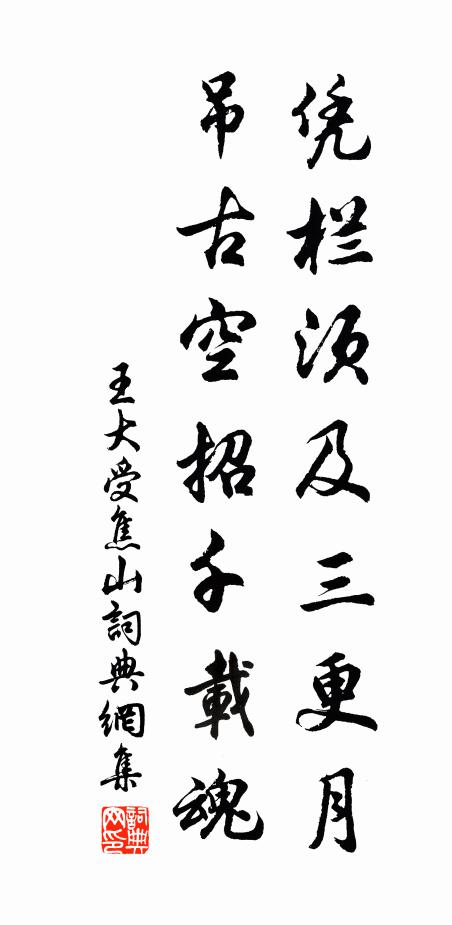 凭栏须及三更月
吊古空招千载魂
王大受焦山詞典網集
詞典网印